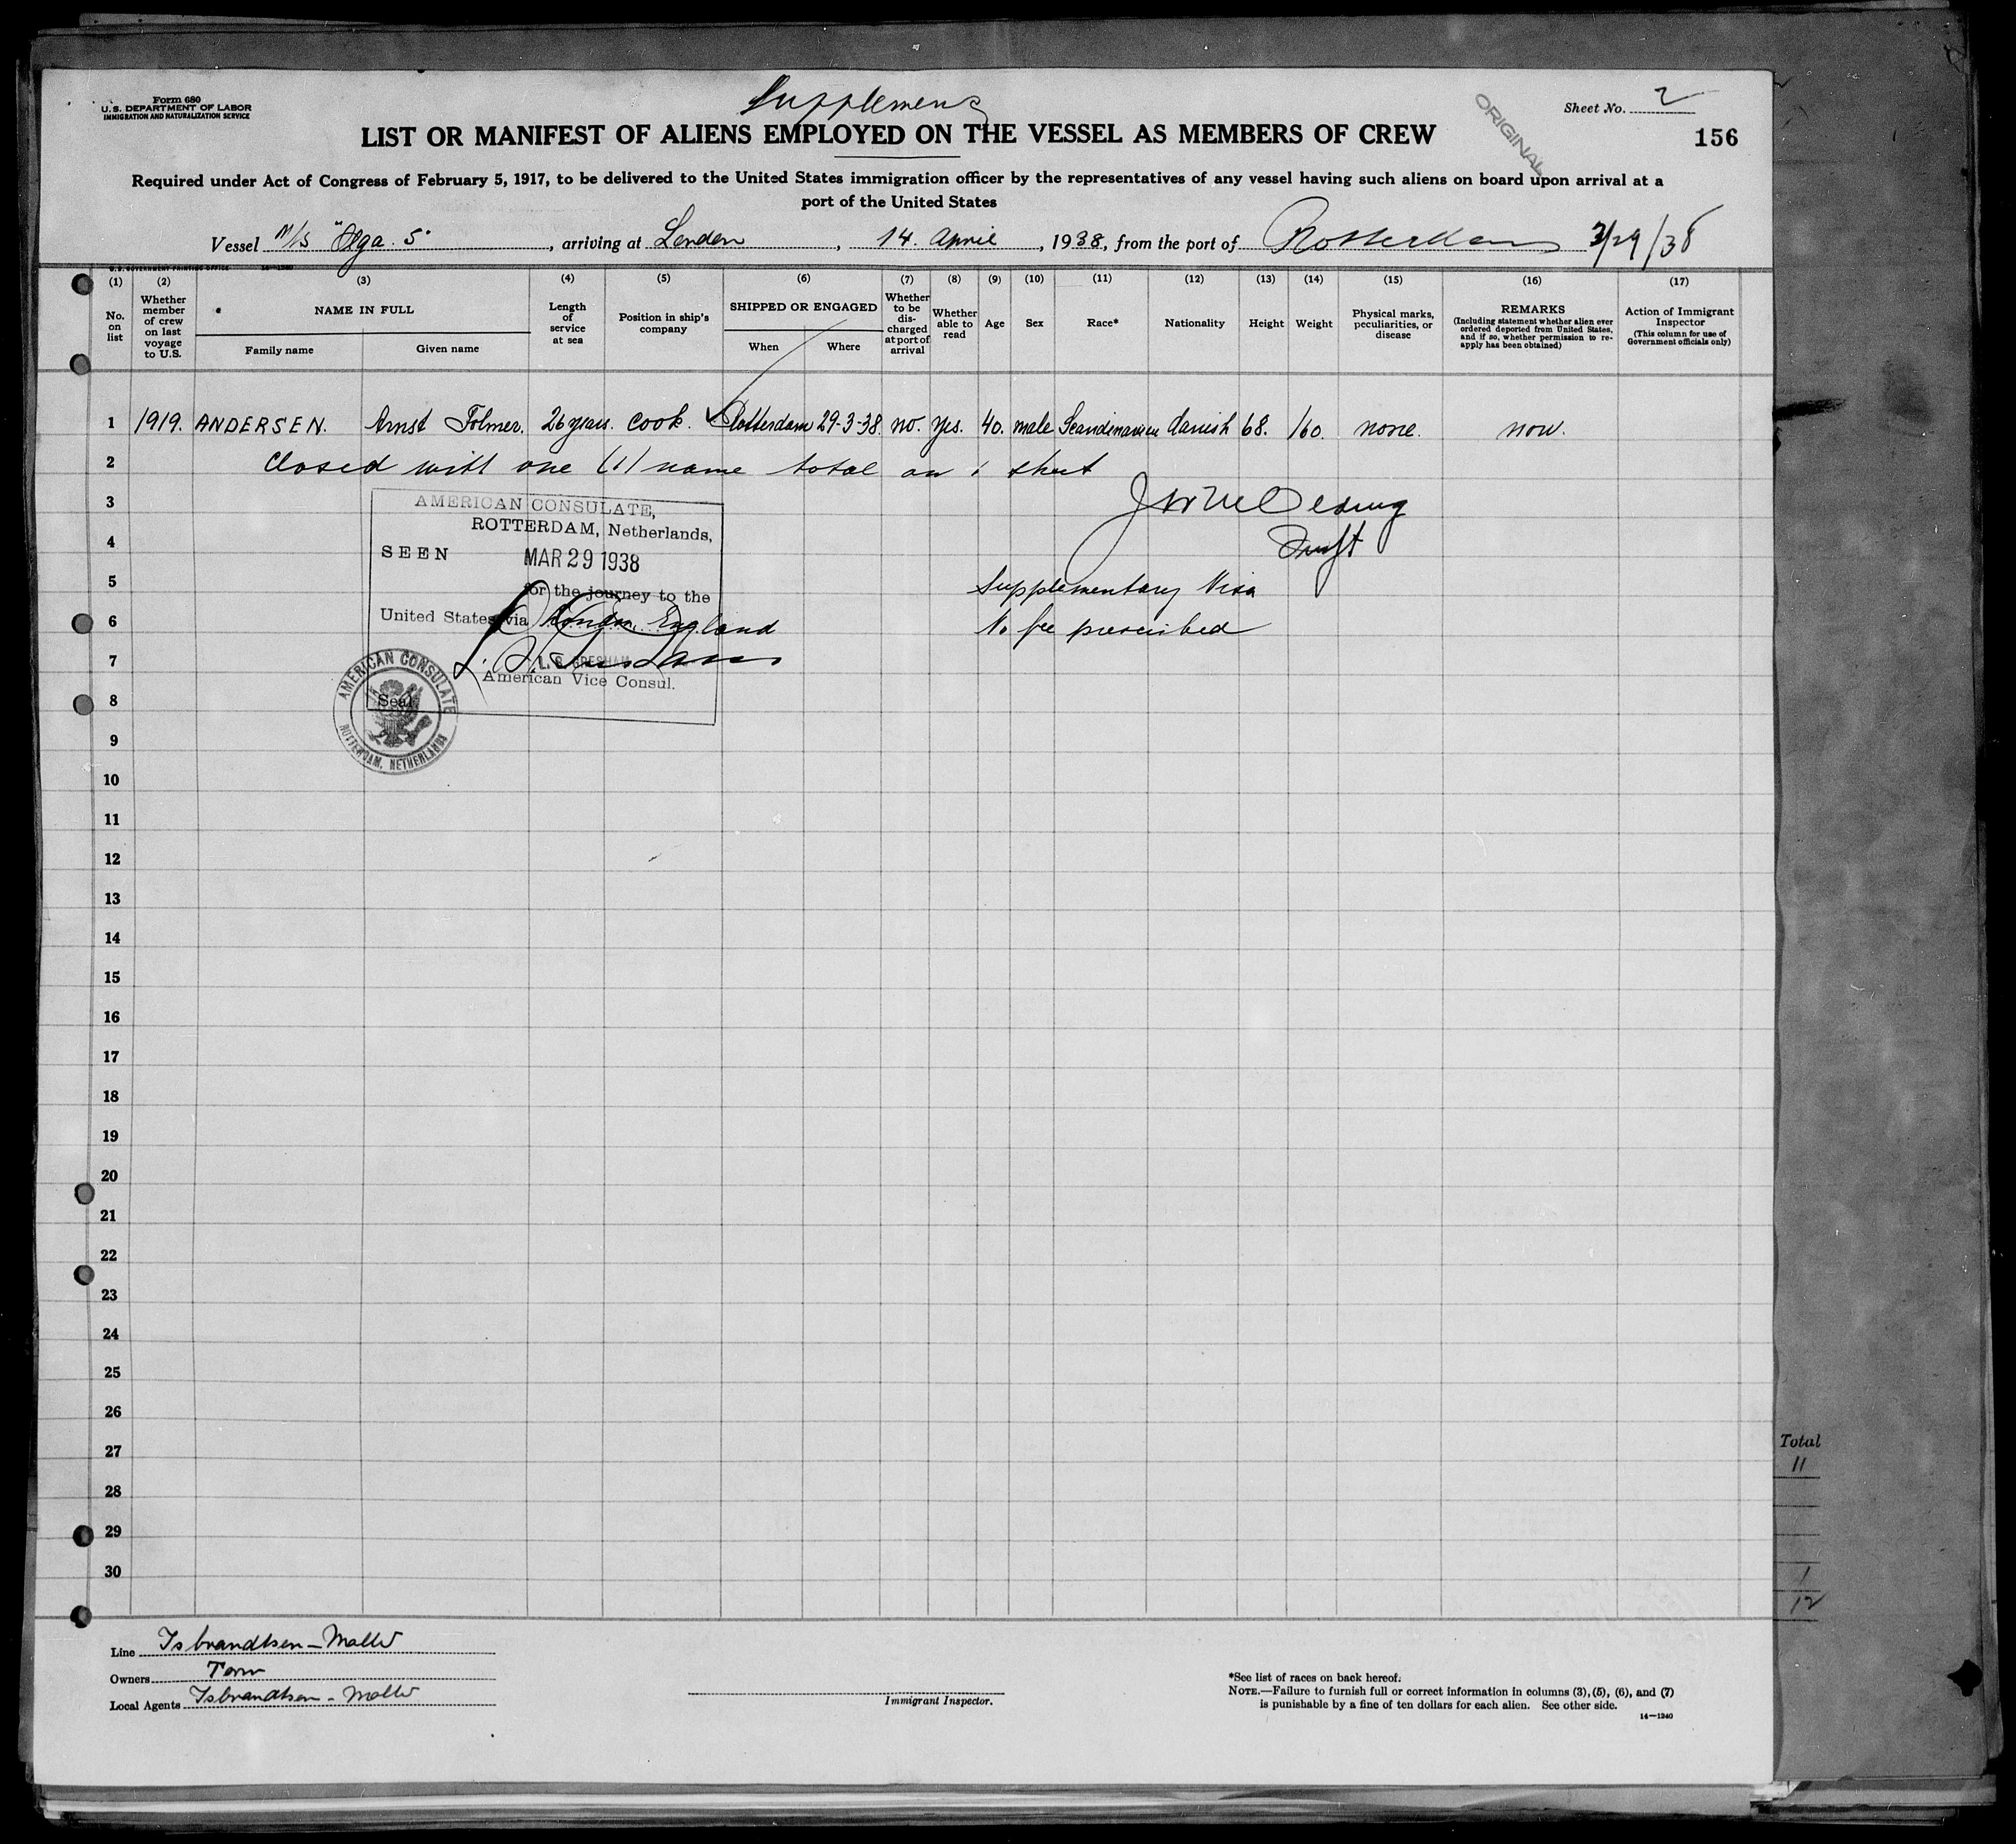 Form 680
U. S. DEPARTMENT OF LABOR
IMMIGRATION AND NATURALIZATION SERVICE
Supplement
Sheet No. 2
ORIGINAL
LIST OR MANIFEST OF ALIENS EMPLOYED ON THE VESSEL AS MEMBERS OF CREW
156
Required under Act of Congress of February 5, 1917, to be delivered to the United States immigration officer by the representatives of any vessel having such aliens on board upon arrival at a
port of the United States
Vessel M/S "Olga. S", arriving at London, 14. April, 1938, from the port of Rotterdam 3/29/38
U. S. GOVERNMENT PRINTING OFFICE 14—1240
(1) No. on list
(2) Whether member of crew on last voyage to U.S.
(3) NAME IN FULL
Family name
Given name
(4) Length of service at sea
(5) Position in ship's company
(6) SHIPPED OR ENGAGED
When
Where
(7) Whether to be discharged at port of arrival
(8) Whether able to read
(9) Age
(10) Sex
(11) Race*
(12) Nationality
(13) Height
(14) Weight
(15) Physical marks, peculiarities, or disease
(16) REMARKS
(Including statement whether alien ever ordered deported from United States, and if so, whether permission to re-apply has been obtained)
(17) Action of Immigrant Inspector
(This column for use of Government officials only)
1 1919. ANDERSEN. Arnst Folmer. 26 years. cook. Rotterdam 29-3-38. no. yes. 40. male Scandinavien danish 68. 160. none. now.
2 Closed with one (1) name total on 1 sheet
3
4
5 Supplementary Visa
6 No fee prescribed
7
8
9
10
11
12
13
14
15
16
17
18
19
20
21
22
23
24
25
26
27
28
29
30
AMERICAN CONSULATE,
ROTTERDAM, Netherlands,
SEEN MAR 29 1938
for the journey to the
United States via London, England
L. S. GRESHAM
American Vice Consul.
Seal
AMERICAN CONSULATE
ROTTERDAM, NETHERLANDS
Total
11
1
12
Line Isbrandtsen-Moller
Owners Torm
Local Agents Isbrandtsen-Moller
Immigrant Inspector.
*See list of races on back hereof.
NOTE.—Failure to furnish full or correct information in columns (3), (5), (6), and (7)
is punishable by a fine of ten dollars for each alien. See other side.
14—1240